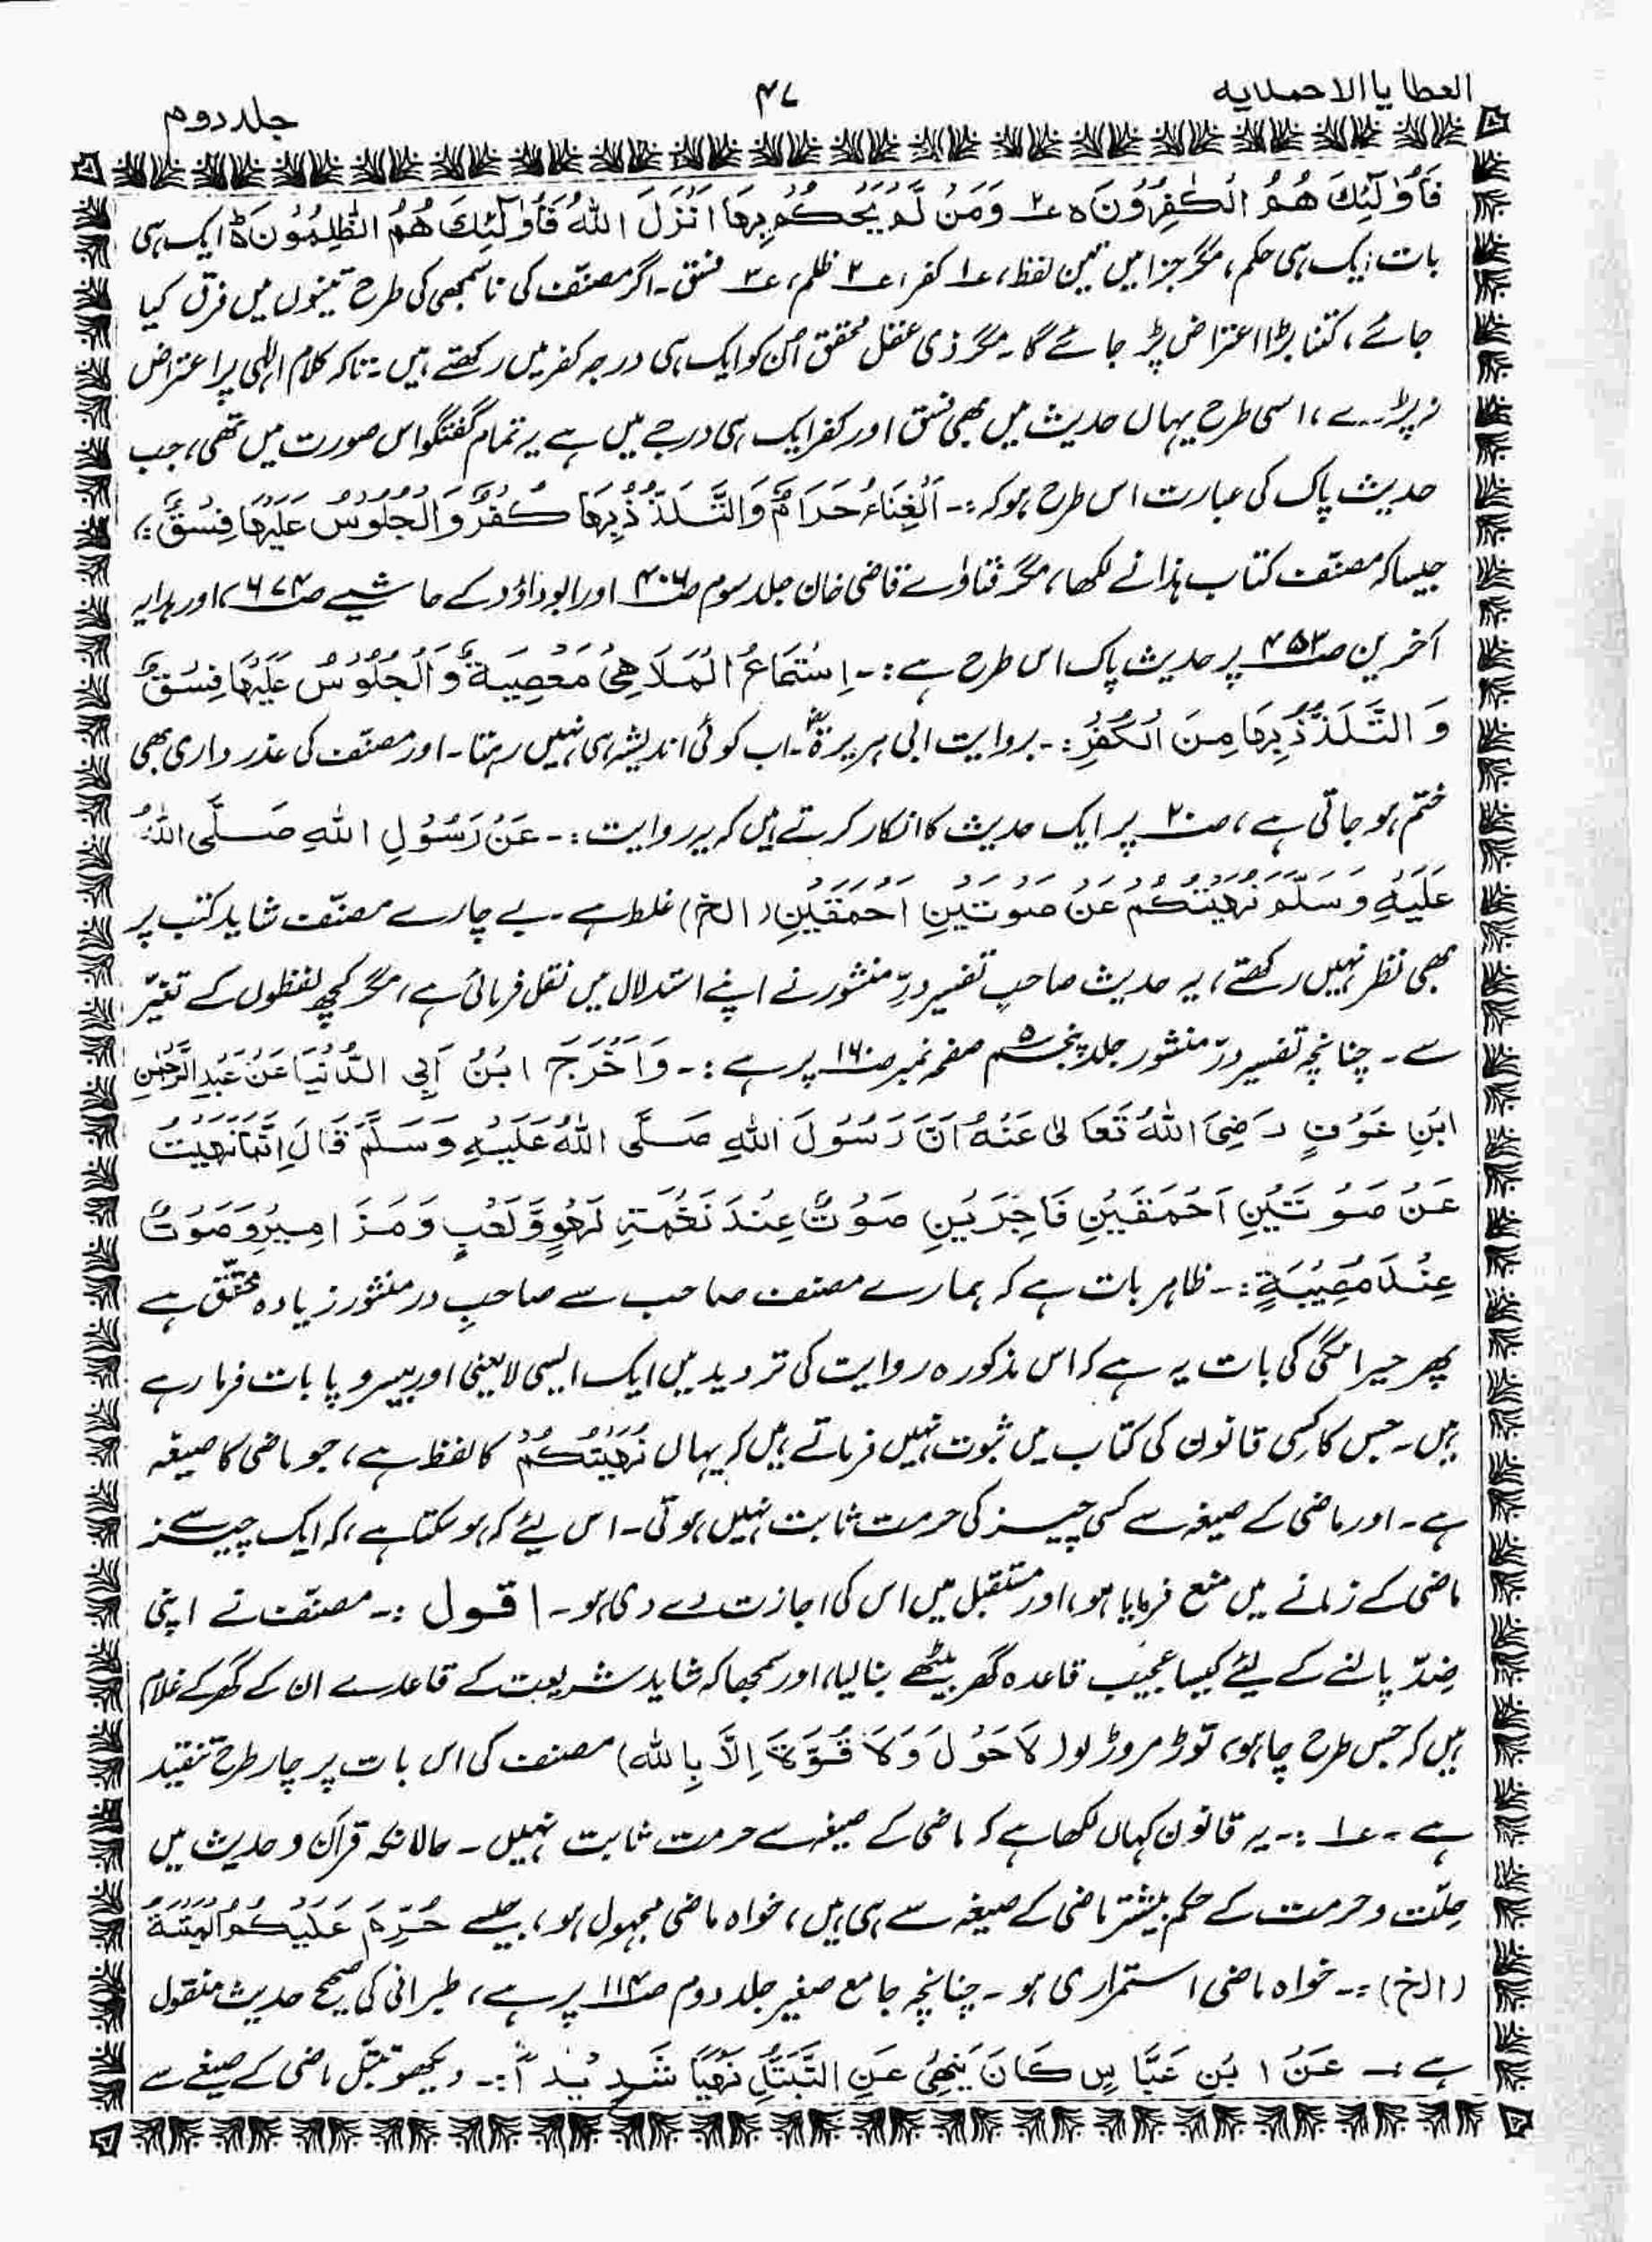 العطایا الاحمدیه
۴۷
جلد دوم
فَاُولٰٓئِكَ هُمُ الْكٰفِرُوْنَ ہ ۲؎ وَمَنْ لَّمْ يَحْكُمْ بِمَا اَنْزَلَ اللهُ فَاُولٰٓئِكَ هُمُ الظّٰلِمُوْنَ ہ ایک ہی
بات ایک ہی حکم، مگر جزا میں تین لفظ، ۱؎ کفر، ۲؎ ظلم، ۳؎ فسق۔ اگر مصنّف کی ناسمجھی کی طرح تینوں میں فرق کیا
جائے، کتنا بڑا اعتراض پڑ جائے گا۔ مگر ذی عقل محقق اُن کو ایک ہی درجہ کفر میں رکھتے ہیں۔ تاکہ کلام الٰہی پر اعتراض
نہ پڑے، اسی طرح یہاں حدیث میں بھی فسق اور کفر ایک ہی درجے میں ہے یہ تمام گفتگو اس صورت میں تھی، جب
حدیث پاک کی عبارت اس طرح ہو کہ:۔ اَلْغِنَاءُ حَرَامٌ وَالتَّلَذُّذُ بِهَا كُفْرٌ وَالْجُلُوْسُ عَلَيْهَا فِسْقٌ؛
جیسا کہ مصنّف کتاب ہذا نے لکھا، مگر فتاوٰے قاضی خان جلد سوم صـ۴۰۶ اور ابوداؤد کے حاشیے صـ۶۷۴، اور ہدایہ
آخرین صـ۴۵۳ پر حدیث پاک اس طرح ہے:۔ اِسْتِمَاعُ الْمَلَاهِيْ مَعْصِيَةٌ وَالْجُلُوْسُ عَلَيْهَا فِسْقٌ
وَالتَّلَذُّذُ بِهَا مِنَ الْكُفْرِ:۔ بروایت ابی ہریرۃؓ۔ اب کوئی اندیشہ ہی نہیں رہتا۔ اور مصنّف کی عذر داری بھی
ختم ہو جاتی ہے، صـ۲۰ پر ایک حدیث کا انکار کرتے ہیں کہ یہ روایت:۔ عَنْ رَسُوْلِ اللهِ صَلَّى اللهُ
عَلَيْهِ وَسَلَّمَ نَهَيْتُكُمْ عَنْ صَوْتَيْنِ اَحْمَقَيْنِ (الخ) غلط ہے۔ بے چارے مصنّف شاید کتب پر
بھی نظر نہیں رکھتے، یہ حدیث صاحبِ تفسیر درِّ منثور نے اپنے استدلال میں نقل فرمائی ہے، مگر کچھ لفظوں کے تغیّر
سے۔ چنانچہ تفسیر درِّ منثور جلد پنجم ۵ صفحہ نمبر صـ۱۶۰ پر ہے:۔ وَاَخْرَجَ ابْنُ اَبِي الدُّنْيَا عَنْ عَبْدِ الرَّحْمٰنِ
ابْنِ عَوْفٍ رَضِيَ اللهُ تَعَالٰى عَنْهُ اَنَّ رَسُوْلَ اللهِ صَلَّى اللهُ عَلَيْهِ وَسَلَّمَ قَالَ اِنَّمَا نَهَيْتُ
عَنْ صَوْتَيْنِ اَحْمَقَيْنِ فَاجِرَيْنِ صَوْتٌ عِنْدَ نَغْمَةِ لَهْوٍ وَّلَعْبٍ وَمَزَامِيْرِ وَصَوْتٌ
عِنْدَ مُصِيْبَةٍ:۔ ظاہر بات ہے کہ ہمارے مصنف صاحب سے صاحبِ در منثور زیادہ محقّق ہے
پھر حیرانگی کی بات یہ ہے کہ اس مذکورہ روایت کی تردید میں ایک ایسی لایعنی اور بیسروپا بات فرما رہے
ہیں۔ جس کا کسی قانون کی کتاب میں ثبوت نہیں فرماتے ہیں کہ یہاں نَهَيْتُكُمْ کا لفظ ہے، جو ماضی کا صیغہ
ہے۔ اور ماضی کے صیغہ سے کسی چیز کی حرمت ثابت نہیں ہوتی۔ اس لیئے کہ ہو سکتا ہے، کہ ایک چیز سے
ماضی کے زمانے میں منع فرمایا ہو، اور مستقبل میں اس کی اجازت دے دی ہو۔ اقول:۔ مصنّف نے اپنی
ضِدّ پالنے کے لیئے کیسا عجیب قاعدہ گھر بیٹھے بنا لیا، اور سمجھا کہ شاید شریعت کے قاعدے ان کے گھر کے غلام
ہیں کہ جس طرح چاہو، توڑ مروڑ لو (لَا حَوْلَ وَلَا قُوَّةَ اِلَّا بِالله) مصنف کی اس بات پر چار طرح تنقید
ہے۔ ۱؎:۔ یہ قانون کہاں لکھا ہے کہ ماضی کے صیغہ سے حرمت ثابت نہیں۔ حالانکہ قرآن و حدیث میں
حلّت و حرمت کے حکم بیشتر ماضی کے صیغہ سے ہی ہیں، خواہ ماضی مجہول ہو، جیسے حُرِّمَ عَلَيْكُمُ الْمَيْتَةُ
(الخ):۔ خواہ ماضی استمراری ہو۔ چنانچہ جامع صغیر جلد دوم صـ۱۱۴ پر ہے، طبرانی کی صحیح حدیث منقول
ہے:۔ عَنْ ابْنِ عَبَّاسٍ كَانَ يَنْهٰى عَنِ التَّبَتُّلِ نَهْيًا شَدِيْدًا:۔ دیکھو تبتّل ماضی کے صیغے سے